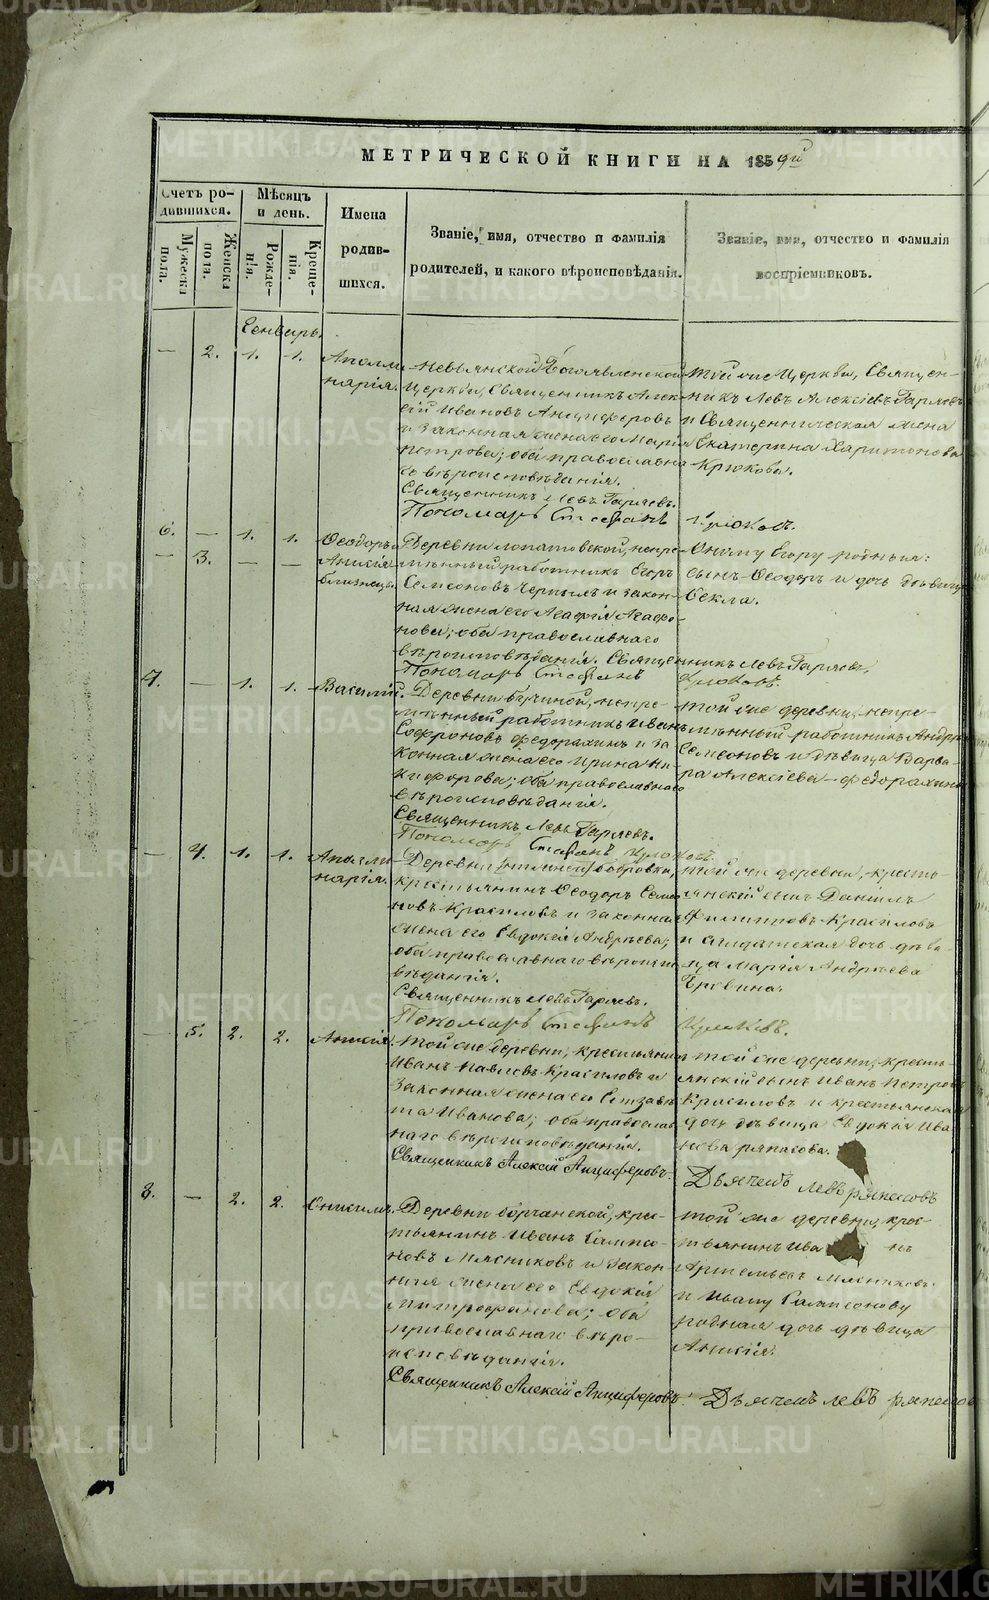 МЕТРИЧЕСКОЙ КНИГИ НА 1859й
Счетъ ро-
дившихся.
Мужеска
пола.
Женска
пола.
Мѣсяцъ
и день.
Рожде-
нія.
Креще-
нія.
Имена
родив-
шихся.
Званіе, имя, отчество и фамилія
родителей, и какого вѣроисповѣданія.
Званіе, имя, отчество и фамилія
воспріемниковъ.
Генварь.
— 2. 1. 1.
Аполли
нарія.
Невьянской Богоявленской
Церкви, Священникъ Алек
сій Ивановъ Анциферовъ
и законная жена его Марія
Петрова; оба православна
го вѣроисповѣданія.
Священникъ Левъ Гаряевъ.
Пономарь Стефанъ Крюковъ.
той же Церкви, Священ-
никъ Левъ Алексіевъ Гаряевъ
и Священническая жена
Екатерина Харитонова
Крюкова.
6. — 1. 1.
— 3. — —
Ѳеодоръ
Анисія
близнецы
Деревни Лопатовской, непре-
мѣнный работникъ Егоръ
Семеоновъ Черныхъ и закон-
ная жена его Агафія Агафо-
нова; оба православнаго
вѣроисповѣданія. Священникъ Левъ Гаряевъ.
Пономарь Стефанъ Крюковъ.
Оному Егору родныя:
сынъ Ѳеодоръ и дочь дѣвица
Ѳекла.
7. — 1. 1.
Василій.
Деревни Бучиной, непре-
мѣнный работникъ Иванъ
Софроновъ Федорахинъ и за
конная жена его Ирина Ни-
кифорова; оба православнаго
вѣроисповѣданія.
Священникъ Левъ Гаряевъ.
Пономарь Стефанъ Крюковъ.
той же деревни, непре-
мѣнный работникъ Андрей
Семеоновъ и дѣвица Варва-
ра Алексіева Федорахины
— 4. 1. 1.
Аполли
нарія.
Деревни Бобровки,
крестьянинъ Ѳеодоръ Семе
новъ Красиловъ и законная
жена его Евдокія Андреева;
оба православнаго вѣроиспо
вѣданія.
Священникъ Левъ Гаряевъ.
Пономарь Стефанъ Крюковъ.
той же деревни, кресть-
янскій сынъ Даніилъ
Филипповъ Красиловъ
и солдатская дочь дѣви-
ца Марія Андреева
— 5. 2. 2.
Анисія.
той же деревни, крестьянин
Иванъ Павловъ Красиловъ и
законная жена его Елизаве
та Иванова; оба православ
наго вѣроисповѣданія.
Священникъ Алексій Анциферовъ.
той же деревни, кресть-
янскій сынъ Иванъ Петровъ
Красиловъ и крестьянская
дочь дѣвица Евдокія Ива
нова
Дьячекъ Левъ
8. — 2. 2.
Онисимъ.
Деревни, крес-
тьянинъ Иванъ Сампсо-
новъ Мясниковъ и закон-
ная жена его Евдокія
Митрофанова; оба
православнаго вѣро-
исповѣданія.
Священникъ Алексій Анциферовъ.
той же деревни, крес-
тьянинъ Ива нъ
Артемьевъ Мясниковъ
и Ивану Сампсонову
родная дочь дѣвица
Анисія.
Дьячекъ Левъ
METRIKI.GASO-URAL.RU